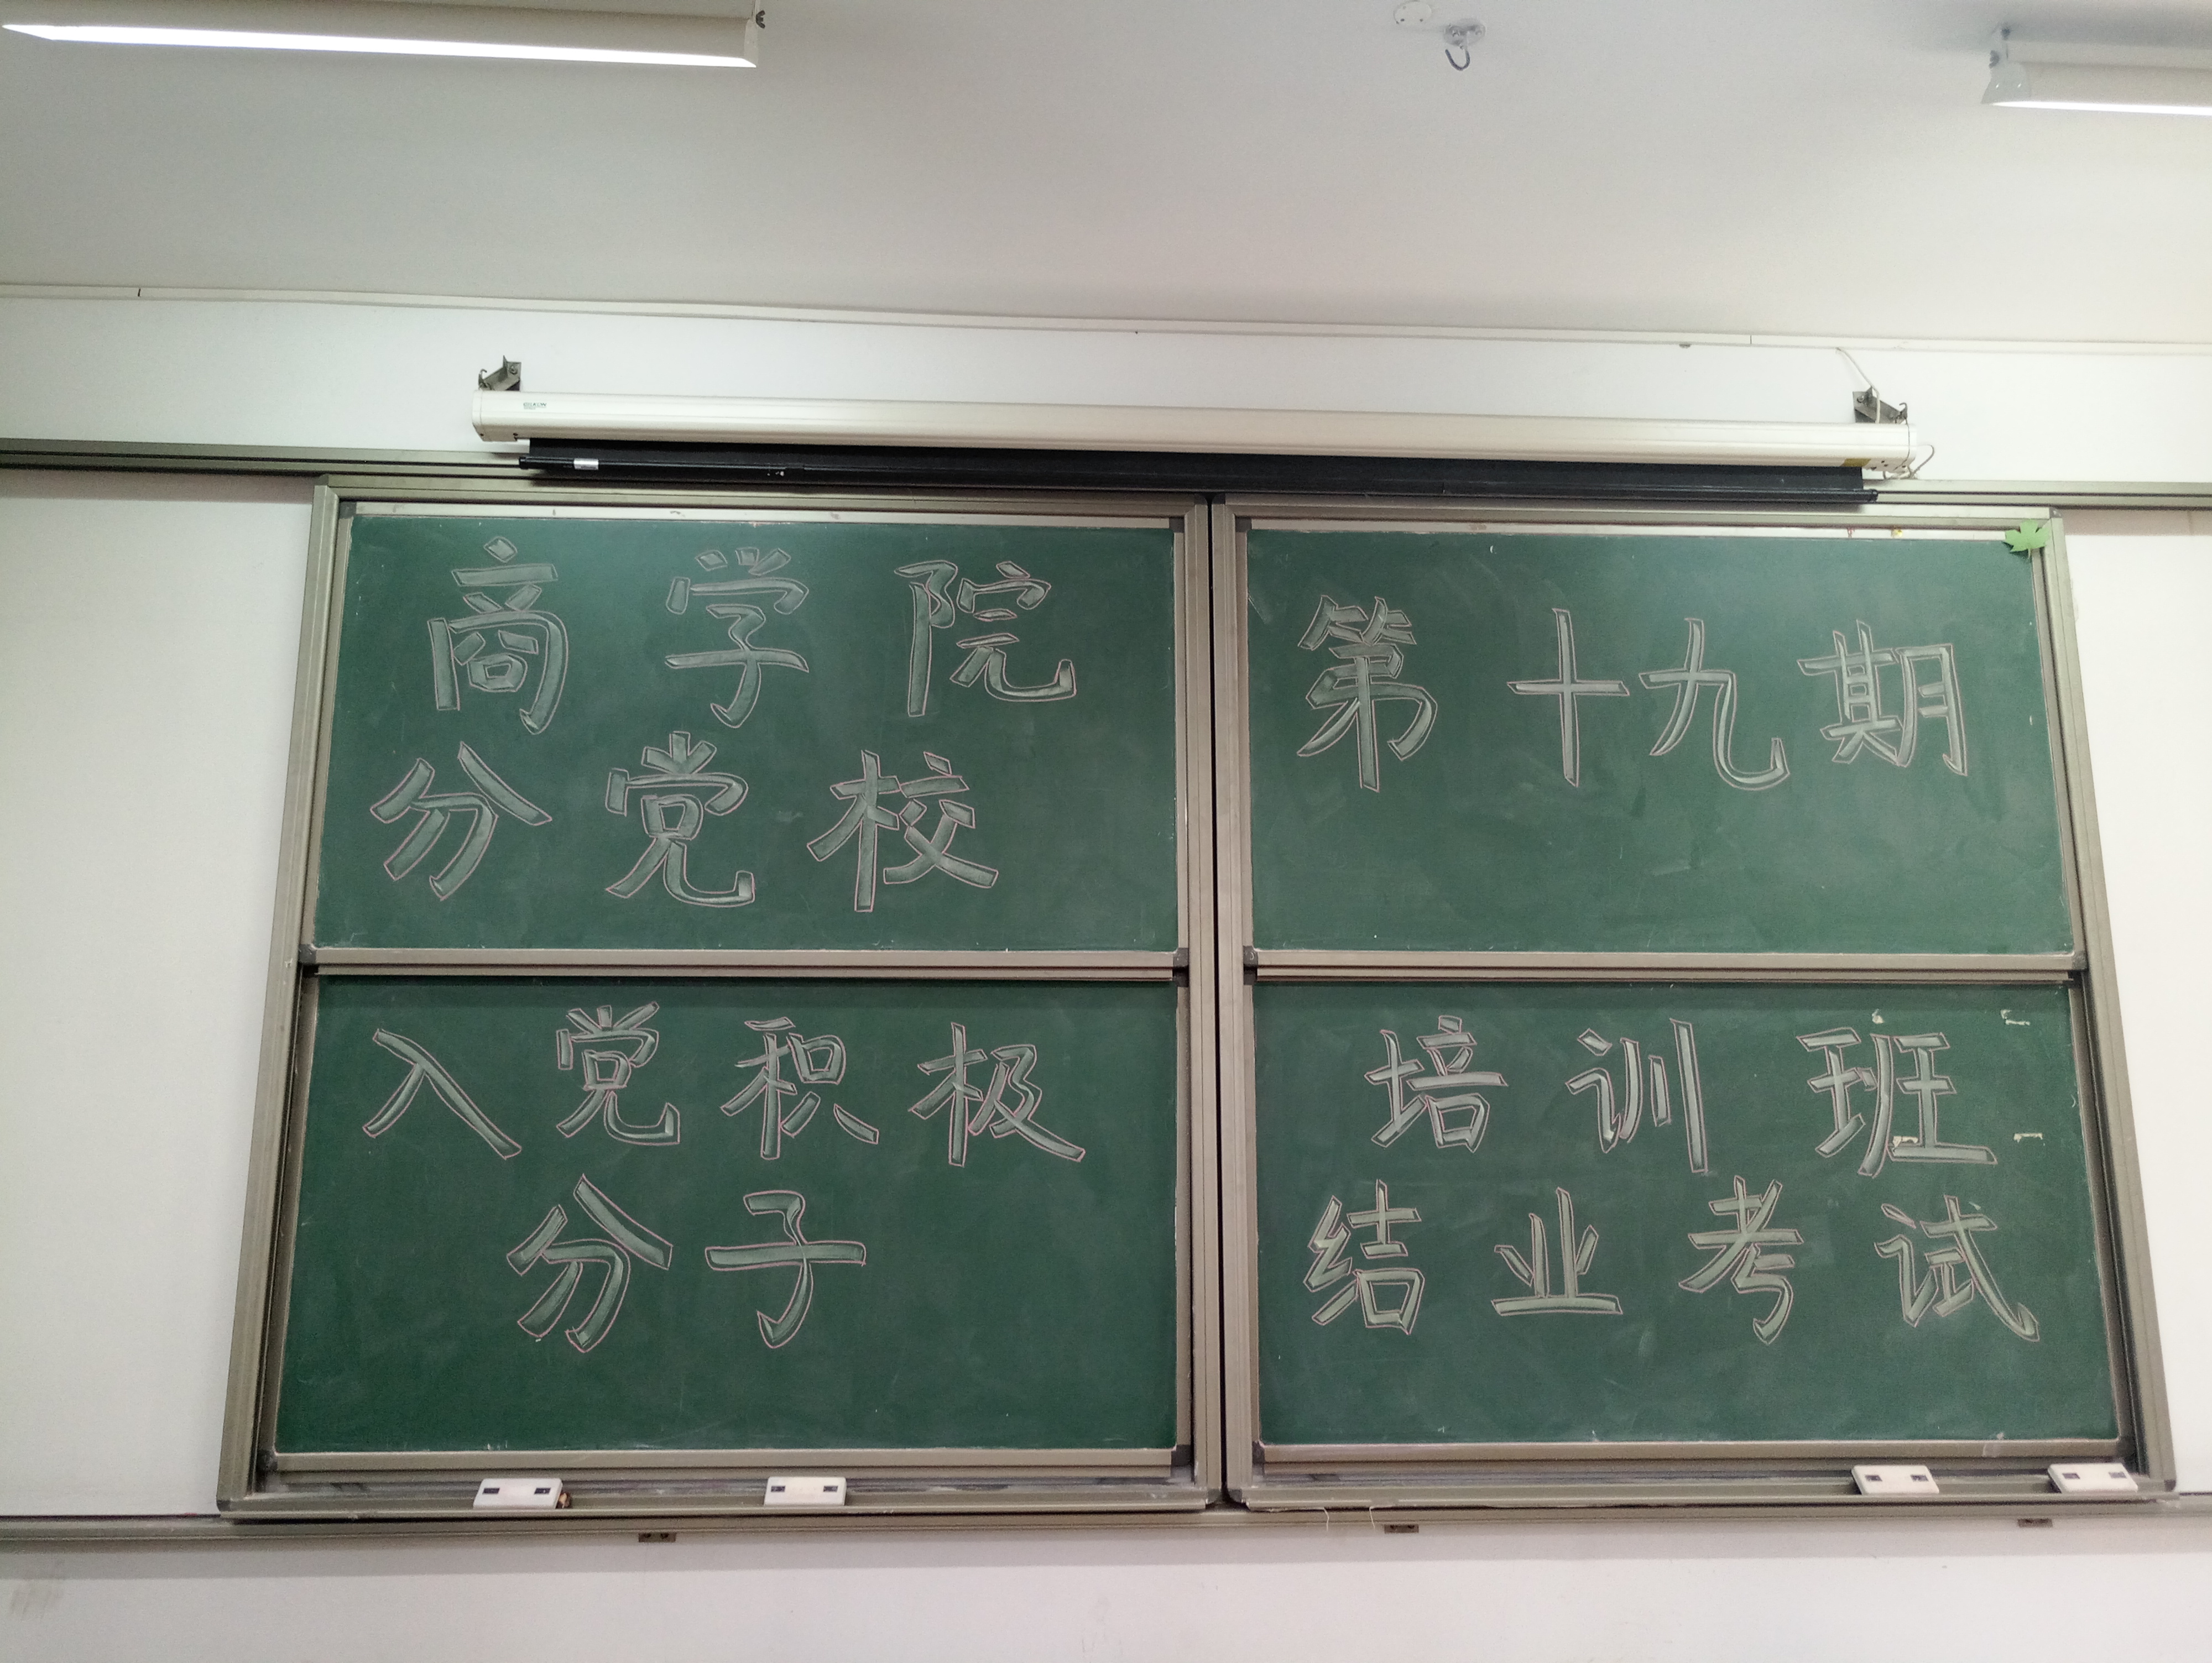 商学院
分党校
第十九期
入党积极
分子
培训班
结业考试